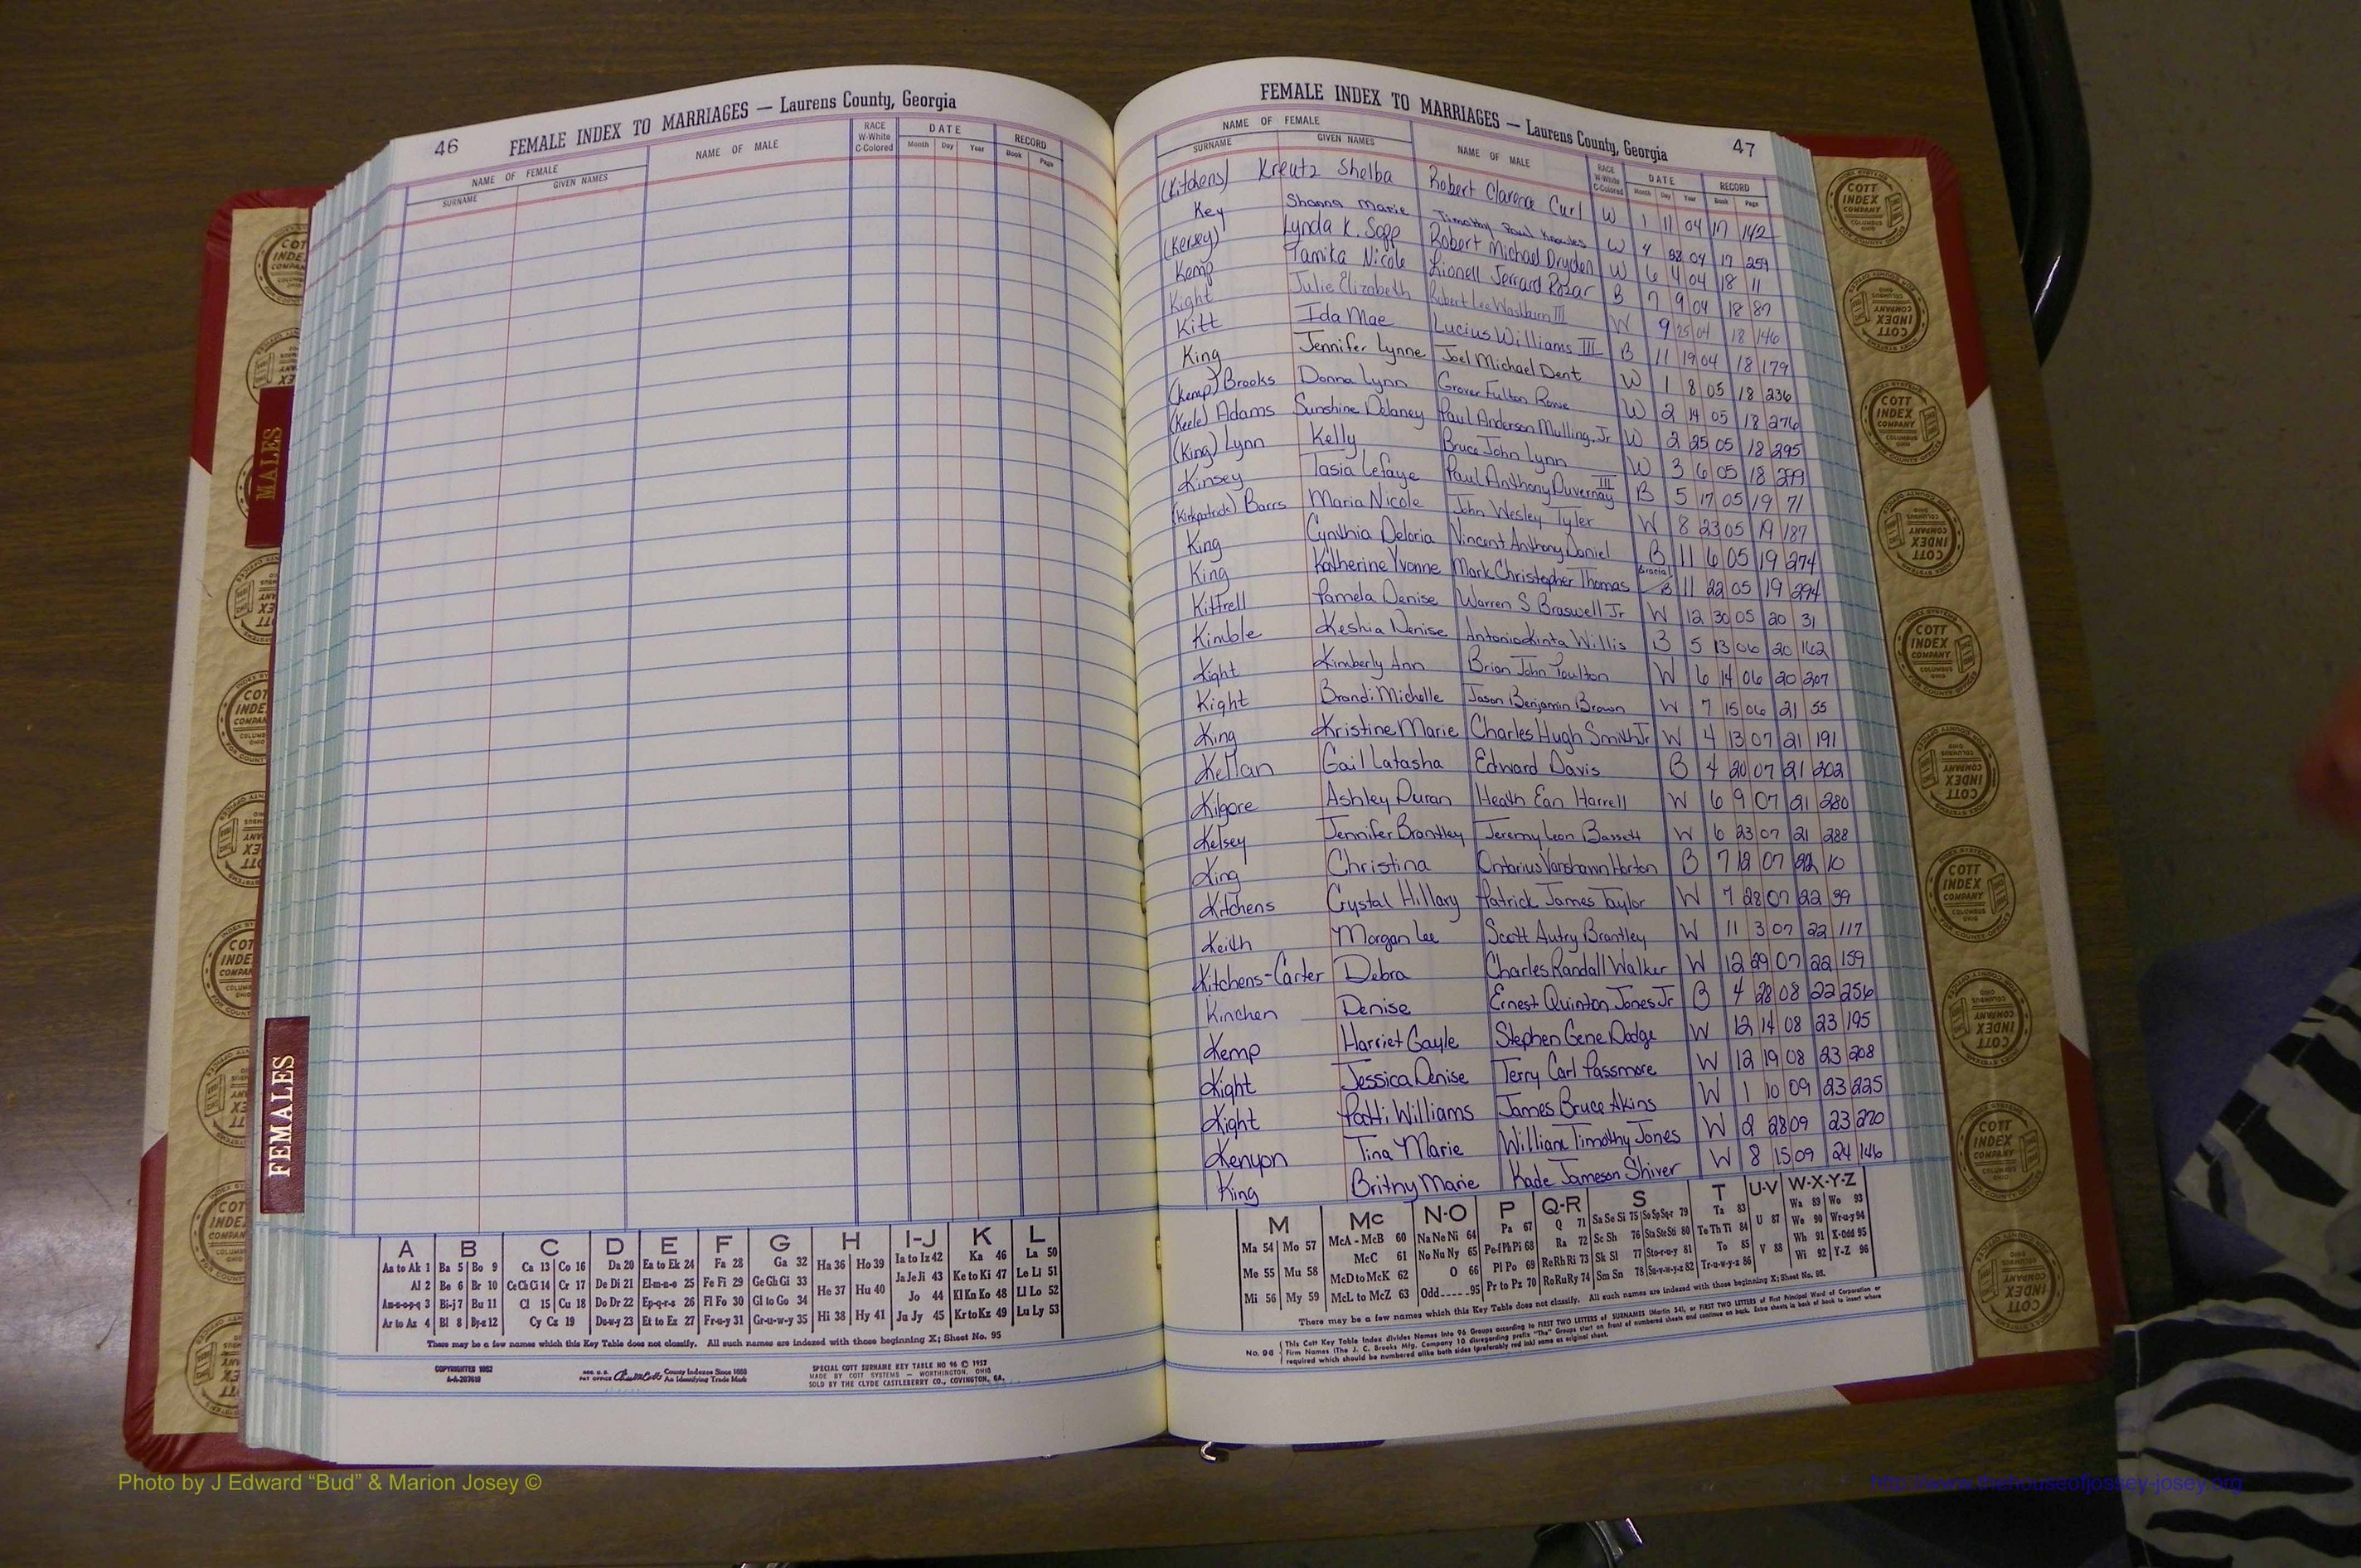 46 FEMALE INDEX TO MARRIAGES — Laurens County, Georgia
NAME OF FEMALE NAME OF MALE RACE W-White C-Colored DATE RECORD
SURNAME GIVEN NAMES Month Day Year Book Page
FEMALE INDEX TO MARRIAGES — Laurens County, Georgia 47
NAME OF FEMALE NAME OF MALE RACE W-White C-Colored DATE RECORD
SURNAME GIVEN NAMES Month Day Year Book Page
(Kitchens) Kreutz Shelba Robert Clarence Curl W 1 11 04 17 142
Key Shanna Marie Timothy Paul Knowles W 4 04 17 259
(Kersey) Lynda K. Sapp Robert Michael Dryden W 6 4 04 18 11
Kemp Tamika Nicole Lionell Jerrard Rozar B 7 9 04 18 87
Kight Julie Elizabeth Robert Lee Washburn III W 9 25 04 18 146
Kitt Ida Mae Lucius Williams III B 11 19 04 18 179
King Jennifer Lynne Joel Michael Dent W 1 8 05 18 236
(Kemp) Brooks Donna Lynn Grover Fulton Rowe W 2 14 05 18 276
(Keele) Adams Sunshine Delaney Paul Anderson Mulling, Jr W 2 25 05 18 295
(King) Lynn Kelly Bruce John Lynn W 3 6 05 18 299
Kinsey Tasia Lefaye Paul Anthony Duvernay III B 5 17 05 19 71
(Kirkpatrick) Barrs Maria Nicole John Wesley Tyler W 8 23 05 19 187
King Cynthia Deloria Vincent Anthony Daniel B 11 6 05 19 274
King Katherine Yvonne Mark Christopher Thomas B 11 22 05 19 294
Kittrell Pamela Denise Warren S Braswell Jr W 12 30 05 20 31
Kimble Keshia Denise Antonio Kinta Willis B 5 13 06 20 162
Kight Kimberly Ann Brian John Poulton W 6 14 06 20 207
Kight Brandi Michelle Jason Benjamin Brown W 7 15 06 21 55
King Kristine Marie Charles Hugh Smith Jr W 4 13 07 21 191
Kellan Gail Latasha Edward Davis B 4 20 07 21 202
Kilgore Ashley Duran Heath Ean Harrell W 6 9 07 21 280
Kelsey Jennifer Brantley Jeremy Leon Bassett W 6 23 07 21 288
King Christina Ontarius Vanshawn Horton B 7 12 07 22 10
Kitchens Crystal Hillary Patrick James Taylor W 7 28 07 22 39
Keith Morgan Lee Scott Autry Brantley W 11 3 07 22 117
Kitchens-Carter Debra Charles Randall Walker W 12 29 07 22 159
Kinchen Denise Ernest Quinton Jones Jr B 4 28 08 22 256
Kemp Harriet Gayle Stephen Gene Dodge W 12 14 08 23 195
Kight Jessica Denise Terry Carl Passmore W 12 19 08 23 208
Kight Patti Williams James Bruce Akins W 1 10 09 23 225
Kenyon Tina Marie William Timothy Jones W 2 28 09 23 270
King Britny Marie Kade Jameson Shiver W 8 15 09 24 146
A B C D E F G H I-J K L
Aa to Ak 1 Ba 5 Bo 9 Ca 13 Co 16 Da 20 Ea to Ek 24 Fa 28 Ga 32 Ha 36 Ho 39 Ia to Iz 42 Ka 46 La 50
Al 2 Be 6 Br 10 Ce Ch Ci 14 Cr 17 De Di 21 El-m-n-o 25 Fe Fi 29 Ge Gh Gi 33 He 37 Hu 40 Ja Je Ji 43 Ke to Ki 47 Le Li 51
Am-n-o-p-q 3 Bi-j 7 Bu 11 Cl 15 Cu 18 Do Dr 22 Ep-q-r-s 26 Fl Fo 30 Gl to Go 34 Jo 44 Kl Kn Ko 48 Ll Lo 52
Ar to Az 4 Bl 8 By-z 12 Cy Cz 19 Du-w-y 23 Et to Ez 27 Fr-u-y 31 Gr-u-w-y 35 Hi 38 Hy 41 Ju Jy 45 Kr to Kz 49 Lu Ly 53
There may be a few names which this Key Table does not classify. All such names are indexed with those beginning X; Sheet No. 95
COPYRIGHTED 1952
County Indexes Since 1888
An Identifying Trade Mark
SPECIAL COTT SURNAME KEY TABLE NO 96 © 1957
MADE BY COTT SYSTEMS — WORTHINGTON, OHIO
SOLD BY THE CLYDE CASTLEBERRY CO., COVINGTON, GA.
M Mc N-O P Q-R S T U-V W-X-Y-Z
Ma 54 Mo 57 McA - McB 60 Na Ne Ni 64 Pa 67 Q 71 Sa Se Si 75 So Sp Sq-r 79 Ta 83 U 87 Wa 89 Wo 93
Me 55 Mu 58 McC 61 No Nu Ny 65 Pe-f Ph Pi 68 Ra 72 Sc Sh 76 Sta Ste Sti 80 Te Th Ti 84 We 90 Wr-u-y 94
McD to McK 62 O 66 Pl Po 69 Re Rh Ri 73 Sk Sl 77 Sto-r-u-y 81 To 85 V 88 Wh 91 X-Odd 95
Mi 56 My 59 McL to McZ 63 Odd 95 Pr to Pz 70 Ro Ru Ry 74 Sm Sn 78 Su-v-w-y-z 82 Tr-u-w-y-z 86 Wi 92 Y-Z 96
There may be a few names which this Key Table does not classify. All such names are indexed with those beginning X; Sheet No. 95.
No. 96 This Cott Key Table Index divides Names into 96 Groups according to FIRST TWO LETTERS of SURNAMES (Martin 54), or FIRST TWO LETTERS of First Principal Word of Corporation or
Firm Names (The J. C. Brooks Mfg. Company 10 disregarding prefix "The" Groups start on front of numbered sheets and continue on back. Extra sheets in back of book to insert where
required which should be numbered alike both sides (preferably red ink) same as original sheet.
MALES
FEMALES
COTT INDEX COMPANY COLUMBUS OHIO
INDEX SYSTEMS FOR COUNTY OFFICES
Photo by J Edward “Bud” & Marion Josey ©
http://www.thehouseofjossey-josey.org